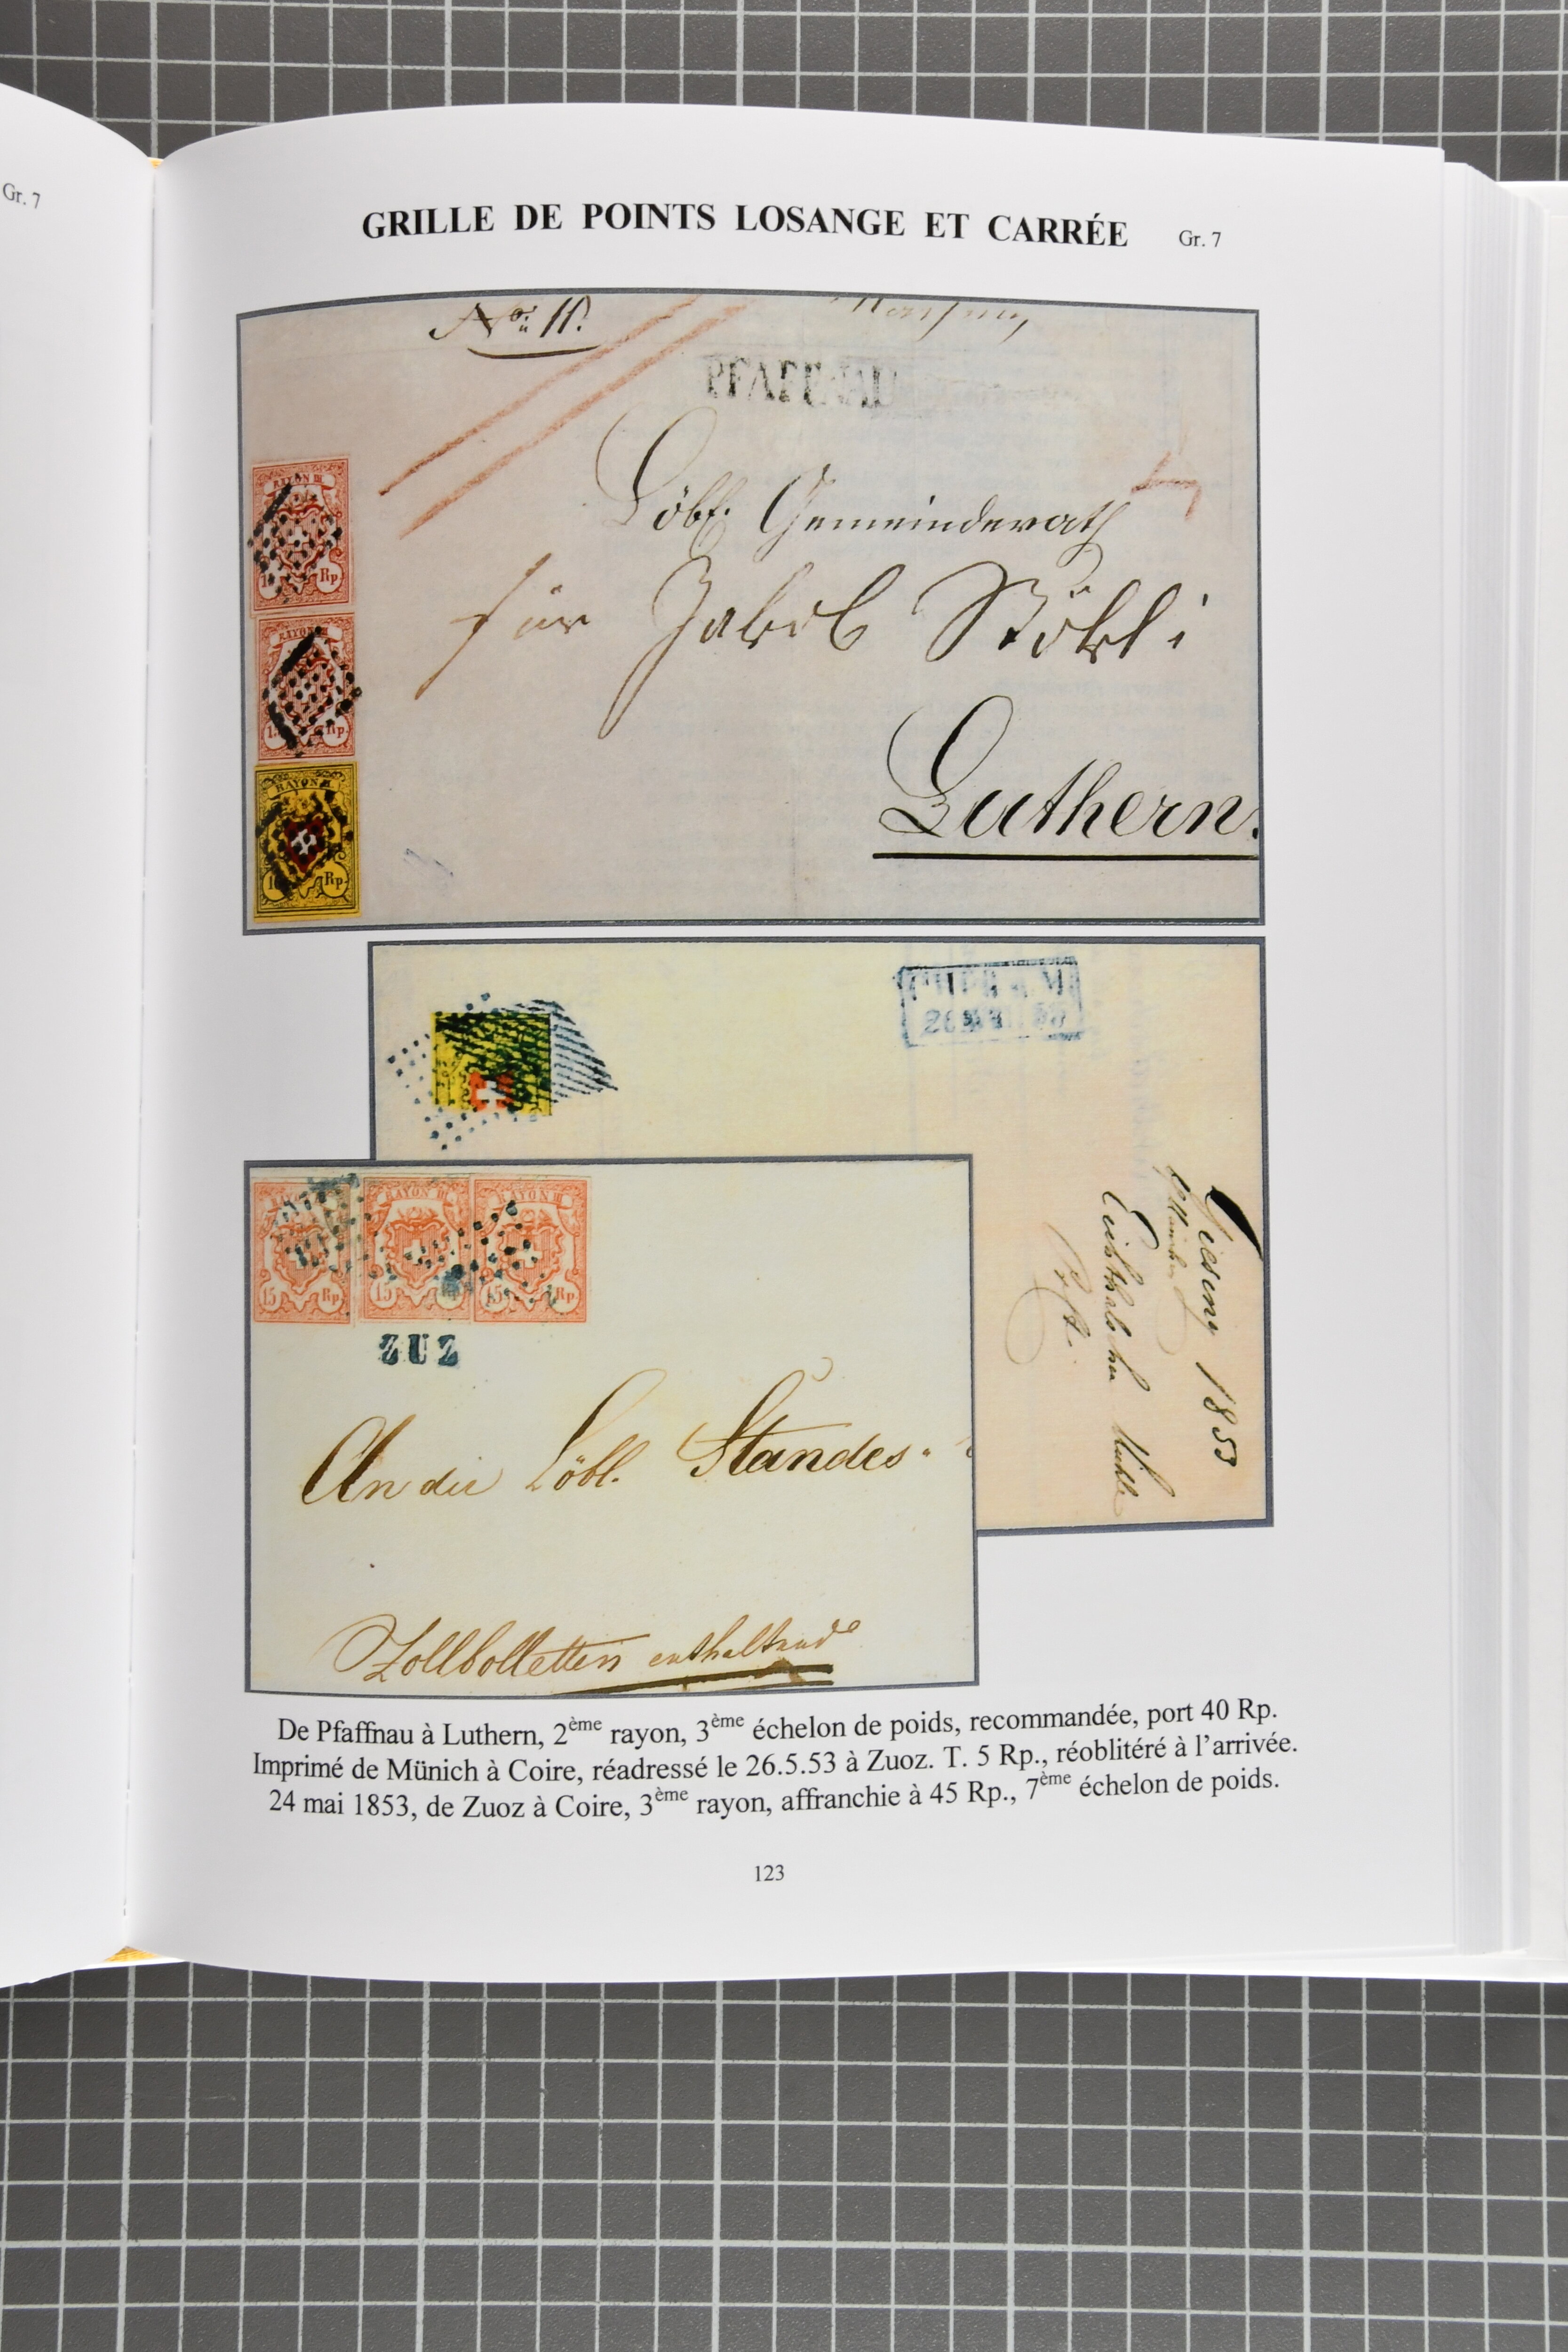 Gr. 7
GRILLE DE POINTS LOSANGE ET CARRÉE Gr. 7
PFAFFNAU
RAYON III
15 Rp.
RAYON III
15 Rp.
RAYON II
10 Rp.
Löbl. Gemeinderath
für Jakob Stökli
Luthern.
RAYON III
15 Rp.
RAYON III
15 Rp.
RAYON III
15 Rp.
ZUZ
An die Löbl. Standes-
Zollbolletten enthaltend
Giesing 1853
De Pfaffnau à Luthern, 2ème rayon, 3ème échelon de poids, recommandée, port 40 Rp.
Imprimé de Münich à Coire, réadressé le 26.5.53 à Zuoz. T. 5 Rp., réoblitéré à l'arrivée.
24 mai 1853, de Zuoz à Coire, 3ème rayon, affranchie à 45 Rp., 7ème échelon de poids.
123